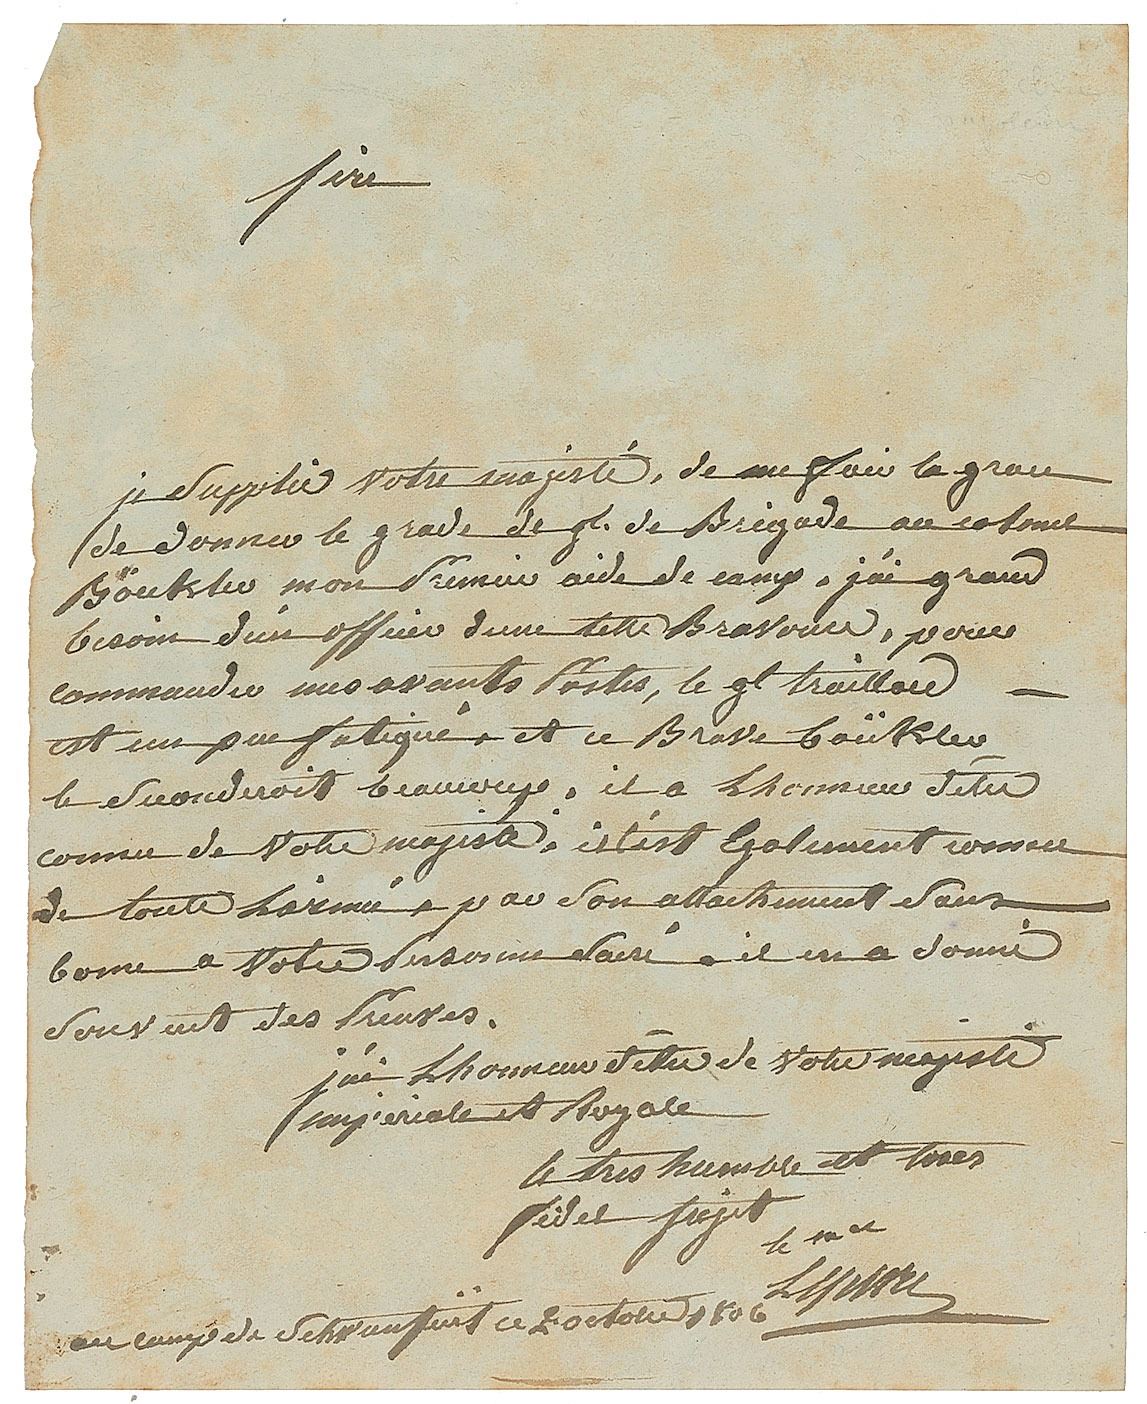 Sire
je Supplie Votre majesté, de me faire la grace
de donner le grade de gl. de Brigade au colonel
Böukler mon Premier aide de camp, j'ai grand
besoin d'un officier d'une telle Bravoure, pour
commander mes avants Postes, le gl traillard
est un peu fatigué, et ce Brave boükler
le Seconderoit beaucoup, il a Lhonneur d'être
connu de Votre majesté, il est Egalement connu
de toute L'armée, par Son attachement Sans
borne a Votre Personne Sacré, il en a donné
Souvent des Preuves.
j'ai Lhonneur d'être de Votre majesté
impériale et Royale
le tres humble et tres
fidel Sujet
le mal
Lefebvre
au camp de ce 2 octobre 1806